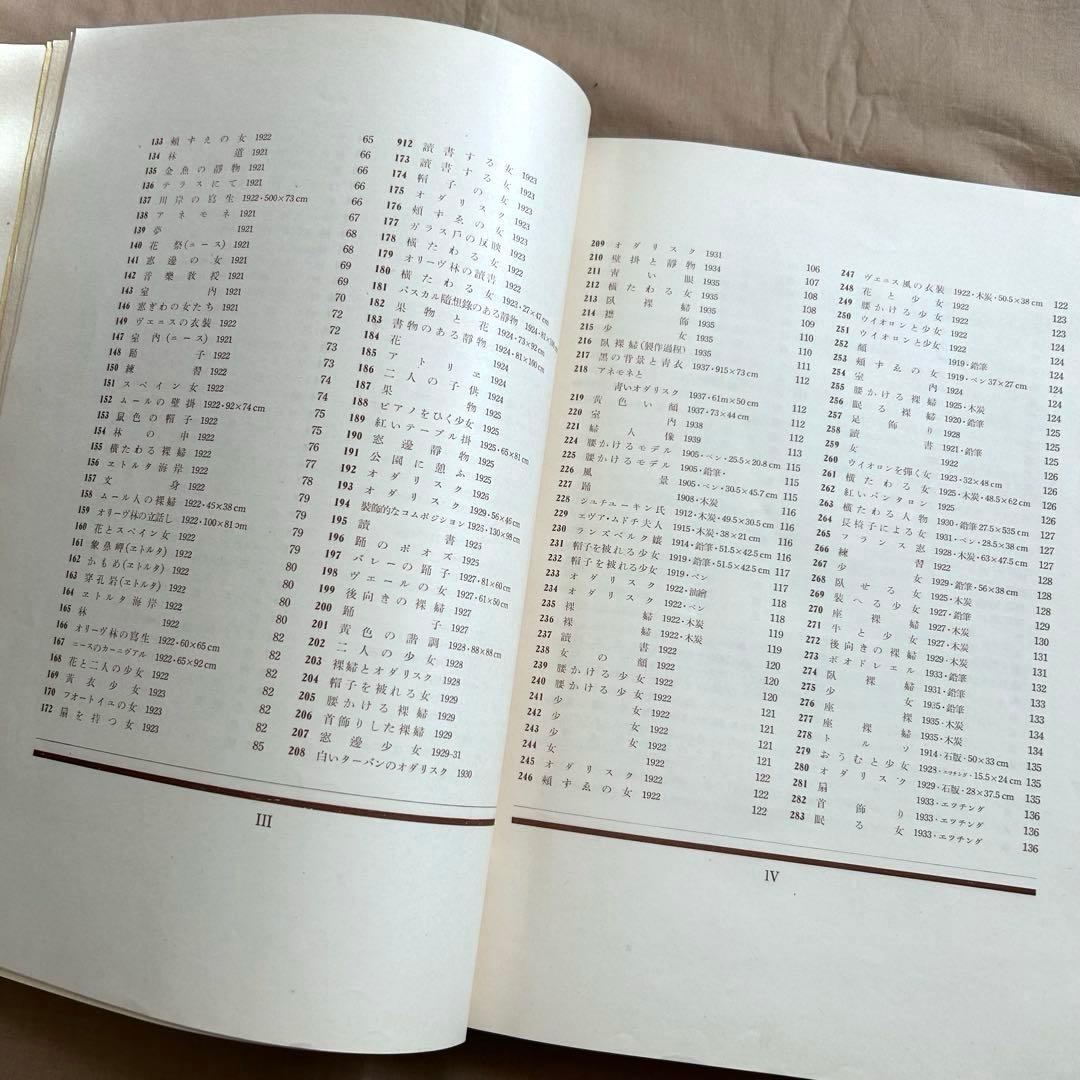 133 頰すえの女 1922 65
134 林道 1921 66
135 金魚の靜物 1921 66
136 テラスにて 1921 66
137 川岸の寫生 1922・500×73cm 66
138 アネモネ 1921 67
139 夢 1921 67
140 花祭(ニース) 1921 68
141 窓邊の女 1921 68
142 音樂敎授 1921 69
143 室內 1922 69
146 窓ぎわの女たち 1922 70
149 ヴェニスの衣装 1922 70
147 室內(ニース) 1922 72
148 踊子 1922 73
150 練習 1922 73
151 スペイン女 1922 74
152 ムールの壁掛 1922・92×74cm 74
153 鼠色の帽子 1922 75
154 林の中 1922 76
155 横たわる裸婦 1922 77
156 ヱトルタ海岸 1922 78
157 文身 1922 79
158 ムール人の裸婦 1922・45×38cm 79
159 オリーヴ林の立話し 1922・100×81cm 79
160 花とスペイン女 1922 79
161 象鼻岬(ヱトルタ) 1922 79
162 かもめ(ヱトルタ) 1922 80
163 穿孔岩(ヱトルタ) 1922 80
164 ヱトルタ海岸 1922 80
165 林 1922 82
166 オリーヴ林の寫生 1922・60×65cm 82
167 ニースのカーニヴアル 1922・65×92cm 82
168 花と二人の少女 1922 82
169 黃衣少女 1923 82
170 フオートイユの女 1923 82
172 扇を持つ女 1923 85
912 讀書する女 1923
173 讀書する女 1923
174 帽子の女 1923
175 オダリスク 1923
176 頰すゑの女 1923
177 ガラス戶の反映 1923
178 橫たわる女 1922
179 オリーヴ林の讀書 1922
180 橫たわる女 1923・27×47cm
181 パスカル隨想錄のある靜物
182 果物と花 1924・73×92cm
183 書物のある靜物 1924・81×100cm
184 花 1924
185 アトリヱ 1924
186 二人の子供 1924
187 果物 1925
188 ピアノをひく少女
189 紅いテーブル掛 1925・65×81cm
190 窓邊靜物 1925
191 公園に憩ふ 1925
192 オダリスク 1926
193 オダリスク 1929・56×46cm
194 裝飾的なコムポジシヨン 1925・130×98cm
195 讀書 1925
196 踊のポオズ
197 バレーの踊子 1927・81×60cm
198 ヴェールの女 1927・61×50cm
199 後向きの裸婦 1927
200 踊子 1927
201 黃色の諧調 1928・88×88cm
202 二人の少女 1928
203 裸婦とオダリスク 1929
204 帽子を被れる女 1929
205 腰かける裸婦 1929
206 首飾りした裸婦 1929
207 窓邊少女 1929-31
208 白いターバンのオダリスク 1930
III
209 オダリスク 1931 106
210 壁掛と靜物 1934 107
211 青い眼 1935 108
212 橫たわる女 1935 108
213 臥裸婦 1935 110
214 襟飾 1935 110
215 少女 1935 111
216 臥裸婦(製作過程) 1935 111
217 黑の背景と靑衣 1937・915×73cm 112
218 アネモネと
靑いオダリスク 1937・61m×50cm 112
219 黃色い顏 1937・73×44cm 112
220 室內 1938 113
221 婦人像 1939 113
224 腰かけるモデル 1905・ペン・25.5×20.8cm 115
225 腰かけるモデル 1905・鉛筆・ 115
226 風景 1905・ペン・30.5×45.7cm 115
227 踊 1908・木炭 116
228 シユチユーキン氏 1912・木炭・49.5×30.5cm 116
229 ヱヴア・ムドチ夫人 1915・木炭・38×21cm 116
230 ランズベルク孃 1914・鉛筆・51.5×42.5cm 116
231 帽子を被れる少女 1919・鉛筆・51.5×42.5cm 117
232 帽子を被れる少女 1919・ペン 117
233 オダリスク 1922・油繪 118
234 オダリスク 1922・ペン 118
235 裸婦 1922・木炭 119
236 裸婦 1922・木炭 119
237 讀書 1922 120
238 女の顏 1922 120
239 腰かける少女 1922 121
240 腰かける少女 1922 121
241 少女 1922 121
242 少女 1922 121
243 少女 1922 122
244 女 1922 122
245 オダリスク 1922 122
246 頰すゑの女 1922 122
247 ヴェニス風の衣装 1922・木炭・50.5×38cm 122
248 花と少女 1922 123
249 腰かける少女 1922 123
250 ウイオロンと少女 1922 123
251 ウイオロンと少女 1922 124
252 顏 1919・鉛筆 124
253 頰すゑの女 1919・ペン37×27cm 124
254 室內 1924 124
255 腰かける裸婦 1925・木炭 124
256 眠る裸婦 1920・鉛筆 125
257 足飾り 1928 125
258 讀書 1921・鉛筆 125
259 女 1922 126
260 ウイオロンを彈く女 1923・32×48cm 126
261 橫たわる女 1925・木炭・48.5×62cm 126
262 紅いパンタロン 1925 126
263 橫たわる人物 1930・鉛筆 27.5×535cm 127
264 長椅子に上る女 1931・ペン・28.5×38cm 127
265 フランス窓 1928・木炭・63×47.5cm 127
266 練習 1922 128
267 少女 1929・鉛筆・56×38cm 128
268 臥せる女 1925・木炭 128
269 裝へる少女 1927・鉛筆 129
270 座裸婦 1927・木炭 130
271 牛と少女 1927・木炭 131
272 後向きの裸婦 1929・木炭 132
273 ボオドレエル 1931・鉛筆 132
274 臥裸婦 1931・鉛筆 133
275 少女 1932・鉛筆 133
276 女 1935・鉛筆 134
277 座裸婦 1935・木炭 134
278 トルソ 1914・石版・50×33cm 134
279 おうむと少女 1928・エツチング・15.5×24cm 135
280 オダリスク 1929・石版・28×37.5cm 135
281 扇 1933・エツチング 136
282 首飾り 1933・エツチング 136
283 眠る女 1933・エツチング 136
IV